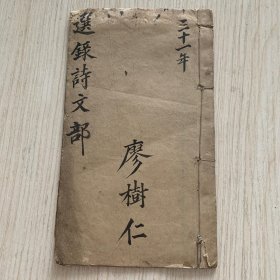 三十一年
選錄詩文部
廖樹仁